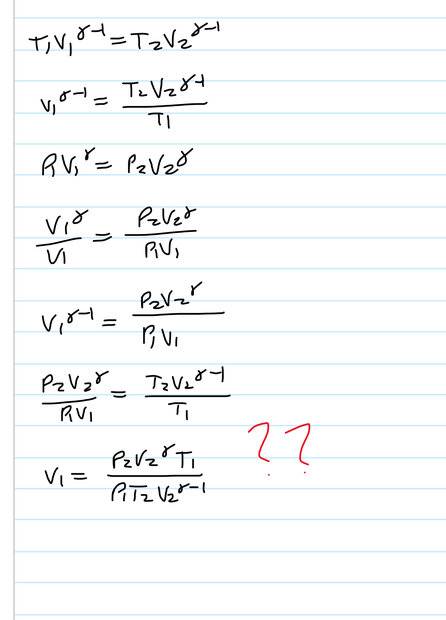 T₁V₁^γ-1 = T₂V₂^γ-1
V₁^γ-1 = T₂V₂^γ-1 / T₁
P₁V₁^γ = P₂V₂^γ
V₁^γ / V₁ = P₂V₂^γ / P₁V₁
V₁^γ-1 = P₂V₂^γ / P₁V₁
P₂V₂^γ / P₁V₁ = T₂V₂^γ-1 / T₁
V₁ = P₂V₂^γ T₁ / P₁T₂V₂^γ-1 ??